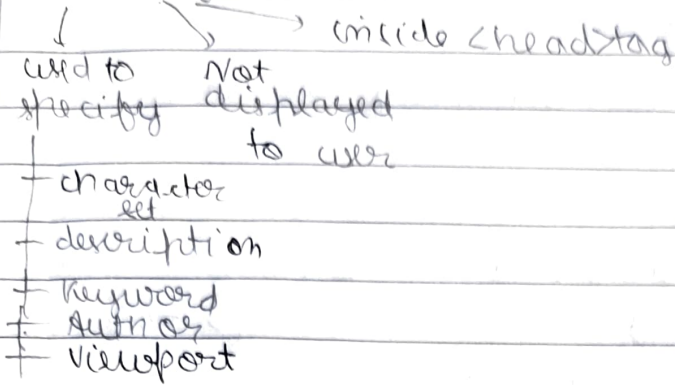 inside <head>tag
used to
specify
Not
displayed
to user
character
set
description
Keyword
Author
viewport